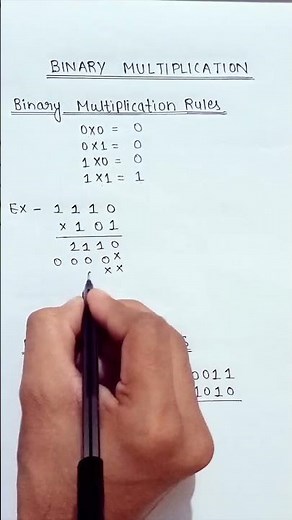 BINARY MULTIPLICATION
Binary Multiplication Rules
0x0 = 0
0x1 = 0
1x0 = 0
1x1 = 1
Ex - 1 1 1 0
x 1 0 1
1 1 1 0
0 0 0 0 x
x x
0011
1010